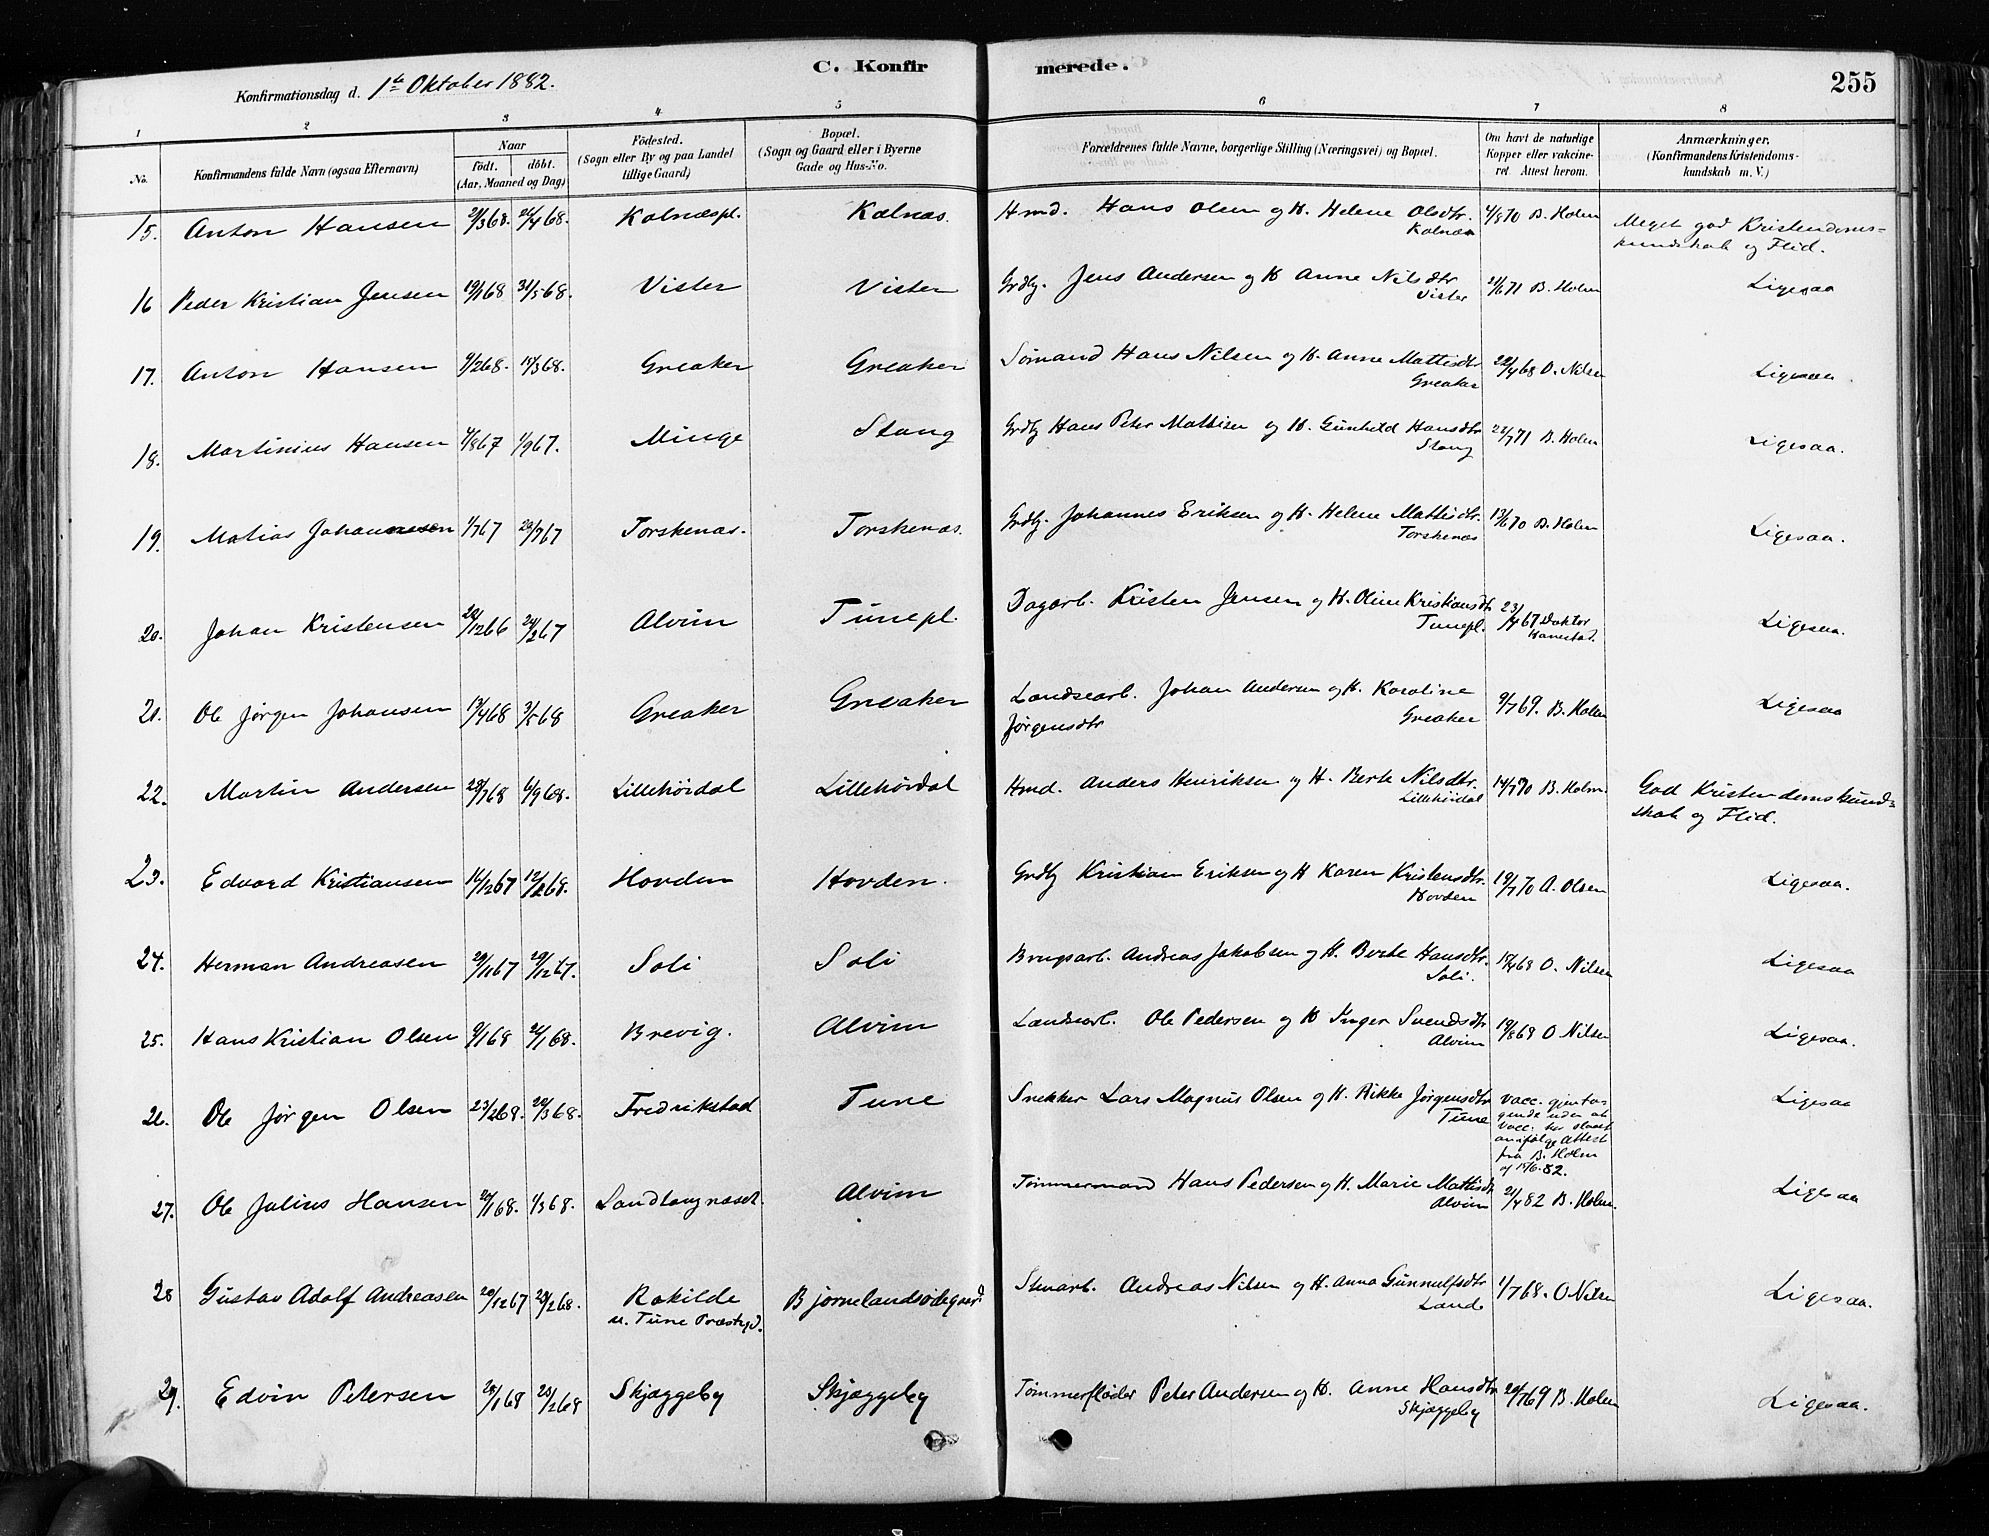 C. Konfirmerede.
255
Konfirmationsdag d. 1ste Oktober 1882.
1 2 3 4 5 6 7 8
No. Konfirmandens fulde Navn (ogsaa Efternavn) Naar født. døbt. (Aar, Maaned og Dag) Fødested. (Sogn eller By og paa Landet tillige Gaard) Bopæl. (Sogn og Gaard eller i Byerne Gade og Hus-No. Forældrenes fulde Navne, borgerlige Stilling (Næringsvei) og Bopæl. Om havt de naturlige Kopper eller vakcineret. Attest herom. Anmærkninger, (Konfirmandens Kristendomskundskab m. V.)
15. Anton Hansen 2/3 68. 26/4 68. Kalnæspl. Kalnæs. Hmd. Hans Olsen og H. Helene Olsdtr. Kalnæs 4/8 70 B. Holm Meget god Kristendomskundskab og Flid.
16 Peder Kristian Jensen 19/1 68 31/5 68. Vister Vister Grdbg. Jens Andersen og H Anne Nilsdtr Vister 21/6 71 B. Holm Ligesaa
17. Anton Hansen 9/2 68. 15/3 68. Greaker Greaker Sømand Hans Nilsen og H. Anne Mattisdtr Greaker 22/4 68 O. Nilsen Ligesaa.
18. Martinius Hansen 4/8 67 1/9 67. Minge Stang Grdbg Hans Peter Mathisen og H. Gunhild Hansdtr Stang 21/7 71 B. Holm Ligesaa.
19. Matias Johannesen 1/7 67 29/7 67 Torskenæs. Torskenæs. Grdbg. Johannes Eriksen og H. Helene Mattisdtr. Torskenæs 13/6 70 B. Holm Ligesaa.
20. Johan Kristensen 22/12 66 24/2 67 Alvim Tunepl. Dagarb. Kristen Jensen og H. Oline Kristiansdtr Tunepl. 23/7 67 Doktor Ligesaa.
21. Ole Jørgen Johansen 13/4 68 3/5 68 Greaker Greaker Landsearb. Johan Andersen og H. Karoline Jørgensdtr Greaker 9/7 69. B. Holm Ligesaa
22. Martin Andersen 28/7 68 6/9 68. Lillehöidal Lillehöidal Hmd. Anders Henriksen og H. Berte Nilsdtr. Lillehøidal 14/7 70 B. Holm. God Kristendomskundskab og Flid.
23. Edvard Kristiansen 16/12 67 12/1 68. Hovden Hovden. Grdbg Kristian Eriksen og H Karen Kristensdtr. Hovden 19/7 70 A. Olsen Ligesaa.
24. Herman Andreasen 29/11 67 29/12 67. Soli Soli Brugsarb. Andreas Jakobsen og H. Berte Hansdtr. Soli. 17/4 68 O. Nilsen Ligesaa
25. Hans Kristian Olsen 9/1 68 26/1 68. Brevig. Alvim Landsearb. Ole Pedersen og H Inger Svendsdtr Alvim 19/8 68 O Nilsen Ligesaa.
26. Ole Jørgen Olsen 23/2 68. 22/3 68. Fredrikstad Tune Snekker Lars Magnus Olsen og H. Rikke Jørgensdtr Tune Vacc. gjentagende uden at Vacc. har slaaet an ifølge Attest fra B. Holm af 15/6 82. Ligesaa
27. Ole Julius Hansen 24/1 68. 1/3 68. Sandtangnæset. Alvim Tømmermand Hans Pedersen og H. Marie Mattisdtr Alvim 21/4 82 B. Holm. Ligesaa
28 Gustav Adolf Andreasen 20/12 67 23/2 68. Rokilde u. Tune Præstegd. Bjørnelandsødegaard Stenarb. Andreas Nilsen og H. Anna Gunnulfsdtr Lande 1/7 68. O Nilsen Ligesaa.
29. Edvin Petersen 28/1 68 23/2 68 Skjæggeby Skjæggeby Tømmerfløder Peter Andersen og H. Anne Hansdtr Skjæggeby 20/7 69 B. Holm Ligesaa.